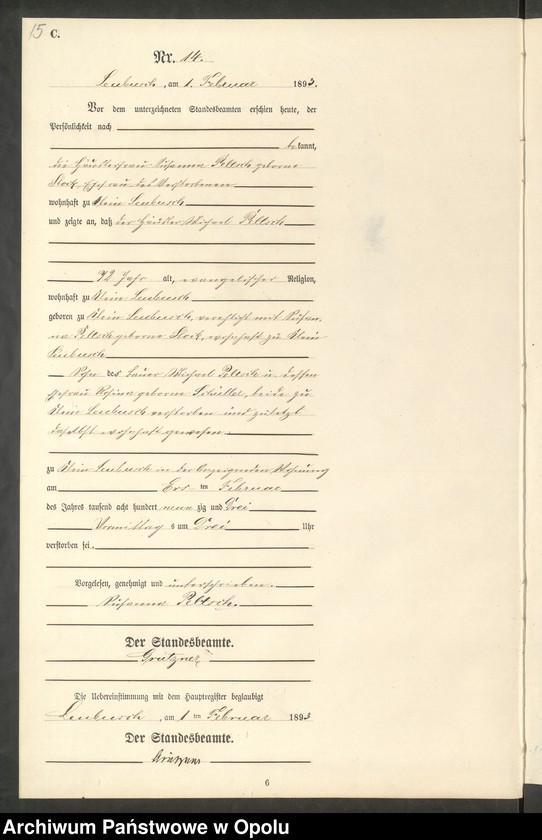 15 C.
Nr. 14.
Leubusch, am 1. Februar 1893.
Vor dem unterzeichneten Standesbeamten erschien heute, der
Persönlichkeit nach
bekannt,
die Häuslerfrau Susanna Peltsch geborne
Stock, Ehefrau des Verstorbenen
wohnhaft zu Klein Leubusch
und zeigte an, daß der Häusler Michael Peltsch
72 Jahr alt, evangelischer Religion,
wohnhaft zu Klein Leubusch
geboren zu Klein Leubusch, verehelicht mit Susan-
na Peltsch geborne Stock, wohnhaft zu Klein
Leubusch
Sohn des Bauer Michael Peltsch u. dessen
Ehefrau Rosina geborne Schüller, beide zu
Klein Leubusch verstorben und zuletzt
daselbst wohnhaft gewesen.
zu Klein Leubusch in der Anzeigenden Wohnung
am Ersten Februar
des Jahres tausend acht hundert neunzig und Drei
Vormittags um Drei Uhr
verstorben sei.
Vorgelesen, genehmigt und unterschrieben.
Susanna Peltsch.
Der Standesbeamte.
Grützner
Die Uebereinstimmung mit dem Hauptregister beglaubigt
Leubusch, am 1 ten Februar 1893
Der Standesbeamte.
Grützner
6
Archiwum Państwowe w Opolu